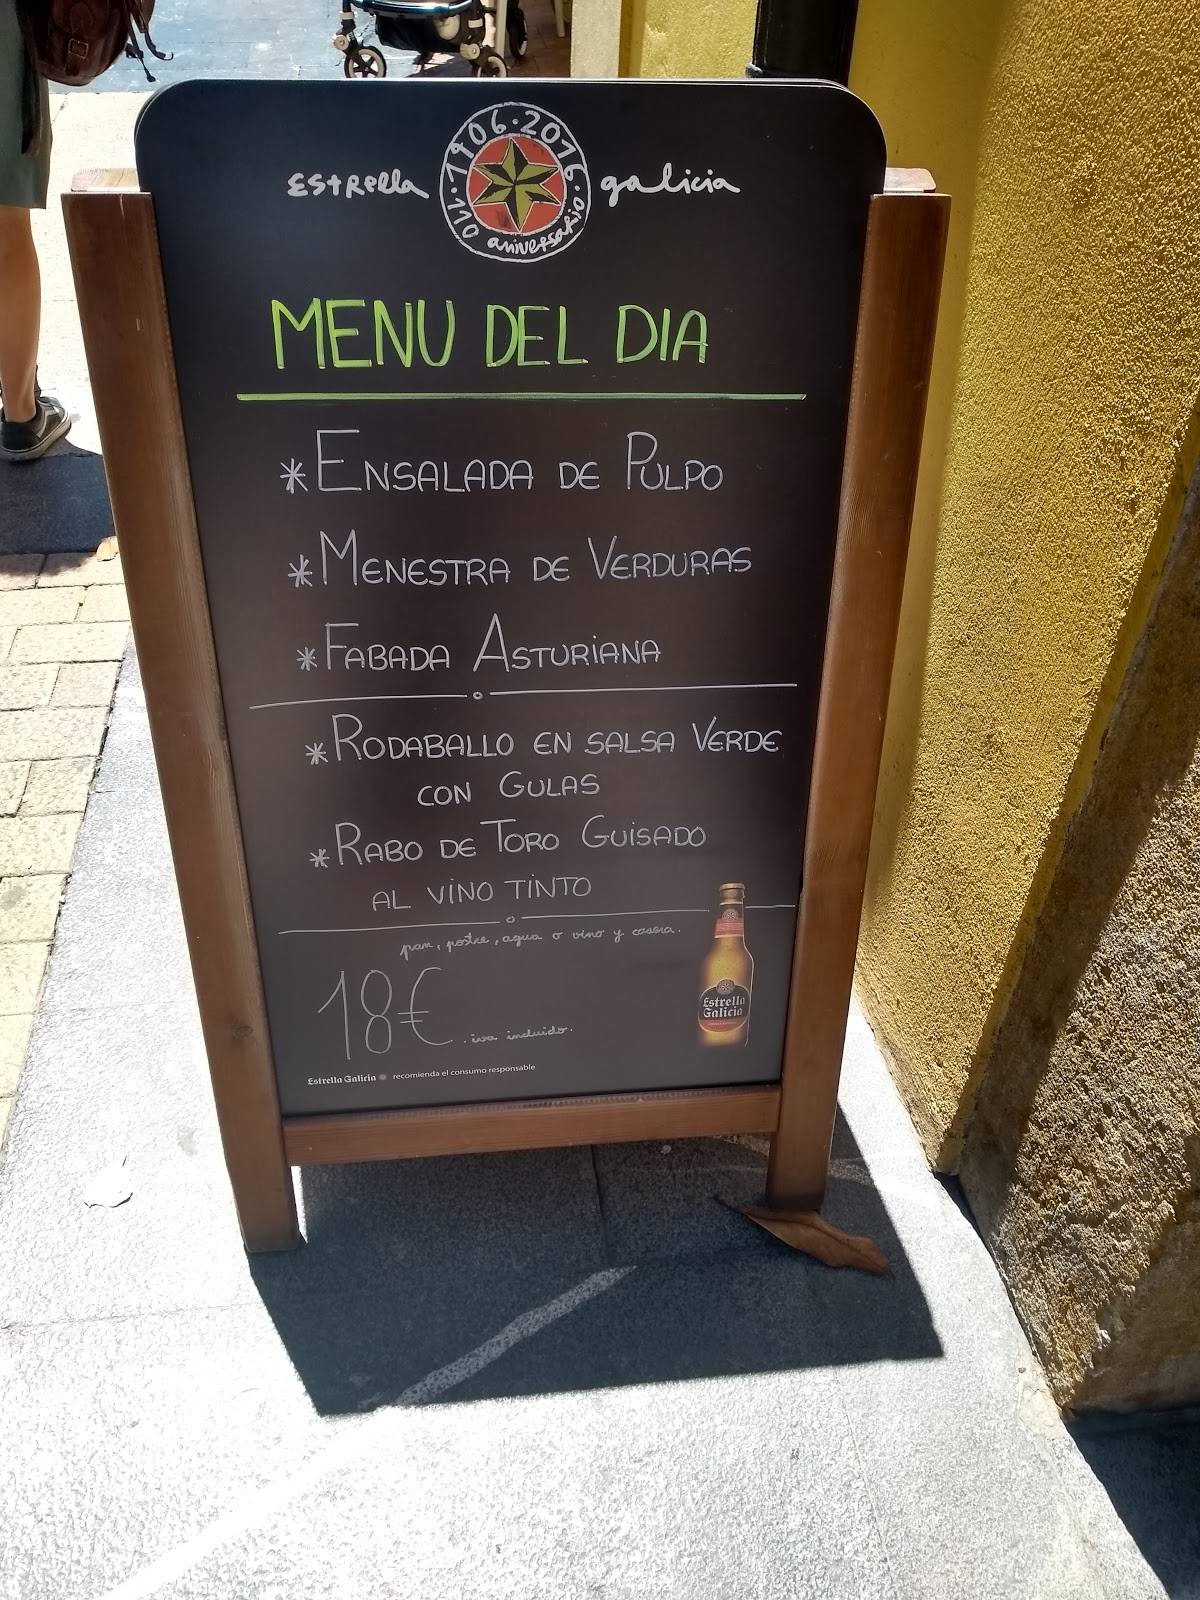 ESTRella galicia
1906·2016
110 aniversario
MENU DEL DIA
*ENSALADA DE PULPO
*MENESTRA DE VERDURAS
*FABADA ASTURIANA
*RODABALLO EN SALSA VERDE
CON GULAS
*RABO DE TORO GUISADO
AL VINO TINTO
pan, postre, agua o vino y casera.
18€ . iva incluido.
Estrella
Galicia
Estrella Galicia recomienda el consumo responsable